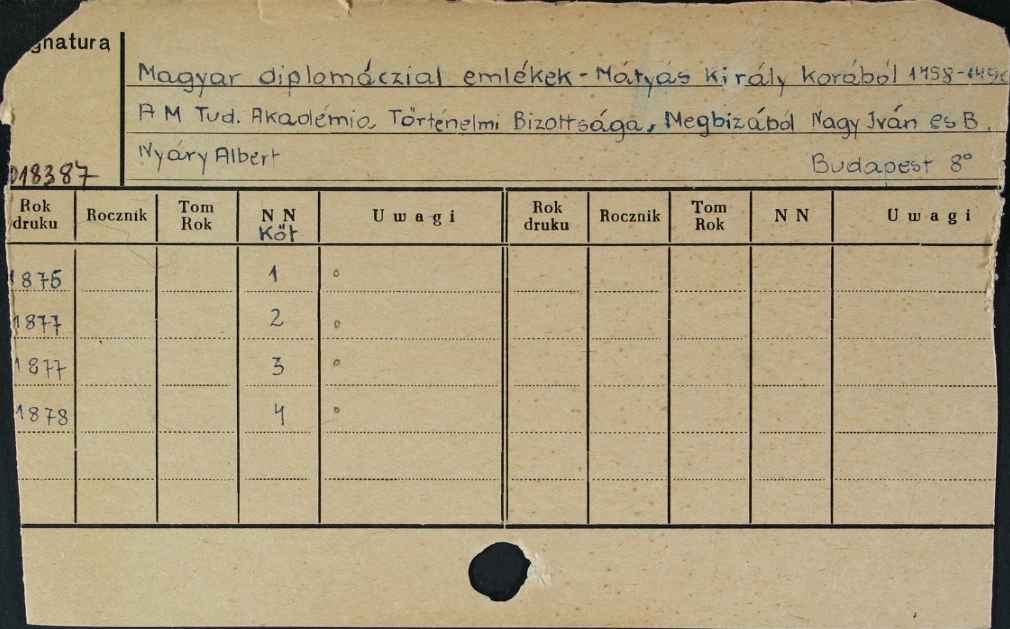 gnatura
Magyar diplomáczial emlékek - Mátyás Király Korából 1458-1490
A M Tud. Akadémia Történelmi Bizottsága, Megbizából Nagy Iván es B.
Nyáry Albert Budapest 8°
018387
Rok druku Rocznik Tom Rok N N Köt Uwagi Rok druku Rocznik Tom Rok N N Uwagi
1875 1 °
1877 2 °
1877 3 °
1878 4 °